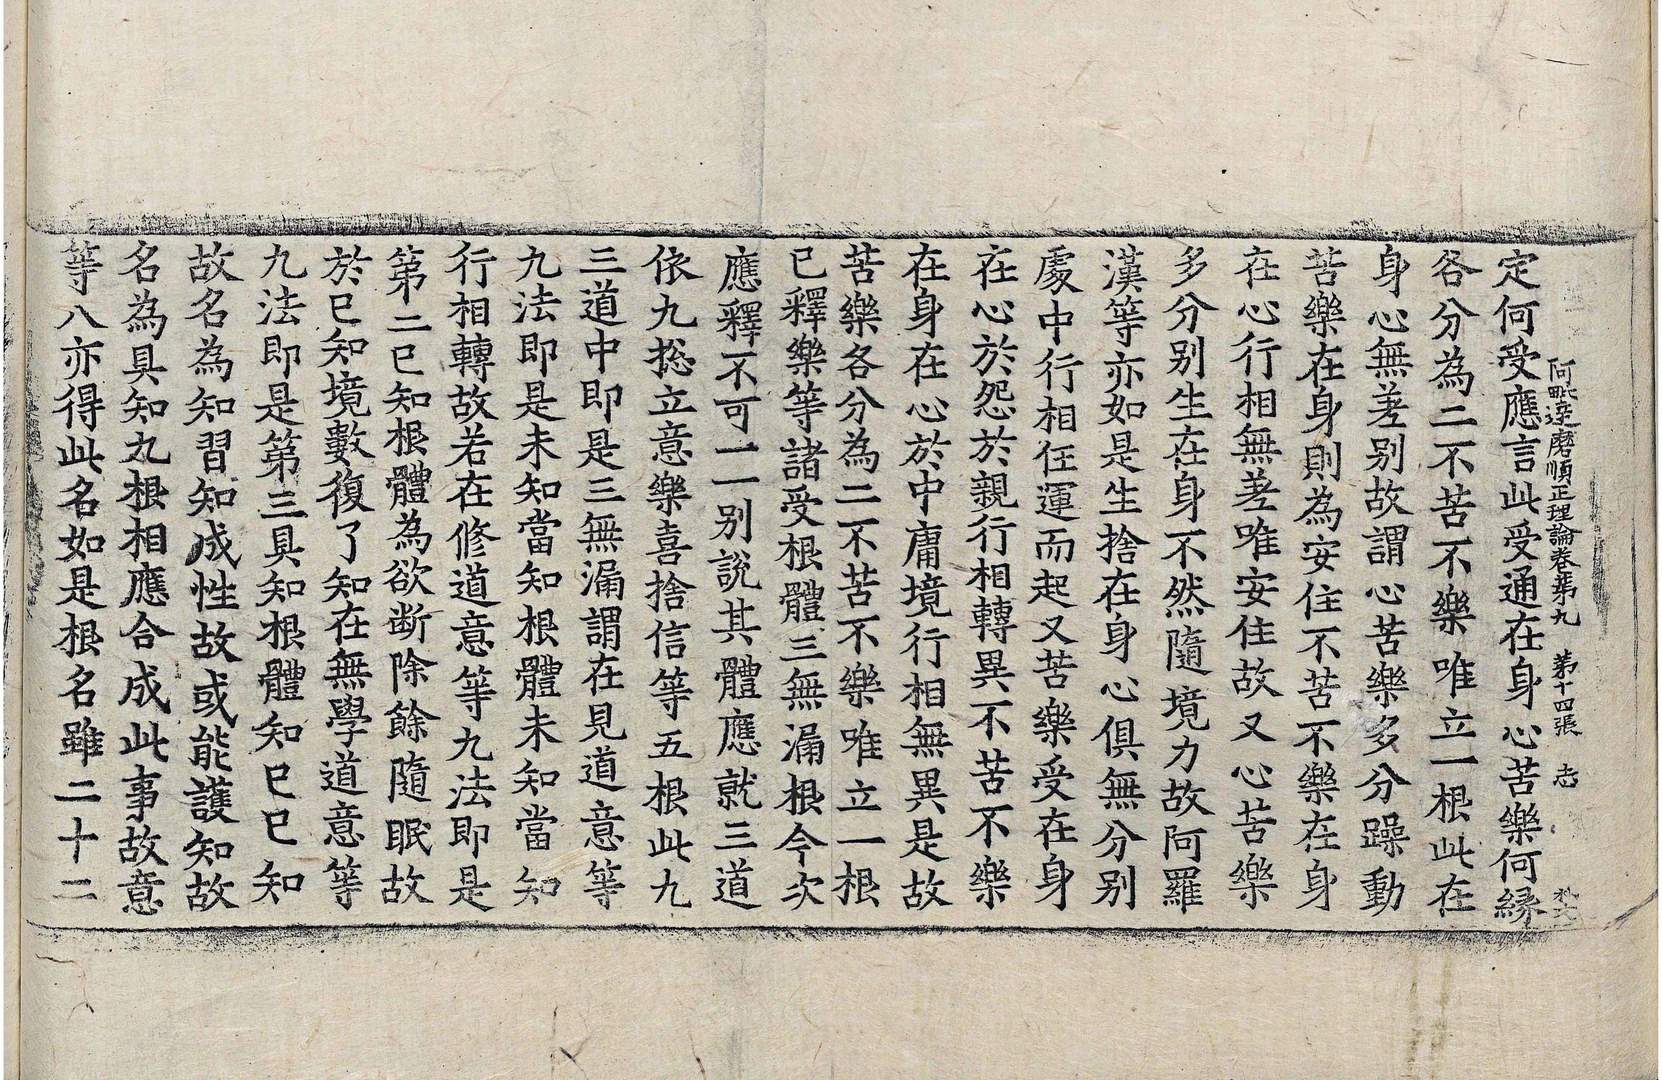 阿毗達磨順正理論卷第九　第十四張　志
定何受應言此受通在身心苦樂何緣
各分為二不苦不樂唯立一根此在
身心無差别故謂心苦樂多分躁動
苦樂在身則為安住不苦不樂在身
在心行相無差唯安住故又心苦樂
多分别生在身不然隨境力故阿羅
漢等亦如是生捨在身心俱無分别
處中行相任運而起又苦樂受在身
在心於怨於親行相轉異不苦不樂
在身在心於中庸境行相無異是故
苦樂各分為二不苦不樂唯立一根
已釋樂等諸受根體三無漏根今次
應釋不可一一别說其體應就三道
依九揔立意樂喜捨信等五根此九
三道中即是三無漏謂在見道意等
九法即是未知當知根體未知當知
行相轉故若在修道意等九法即是
第二已知根體為欲断除餘隨眠故
於已知境數復了知在無學道意等
九法即是第三具知根體知已已知
故名為知習知成性故或能護知故
名為具知九根相應合成此事故意
等八亦得此名如是根名雖二十二